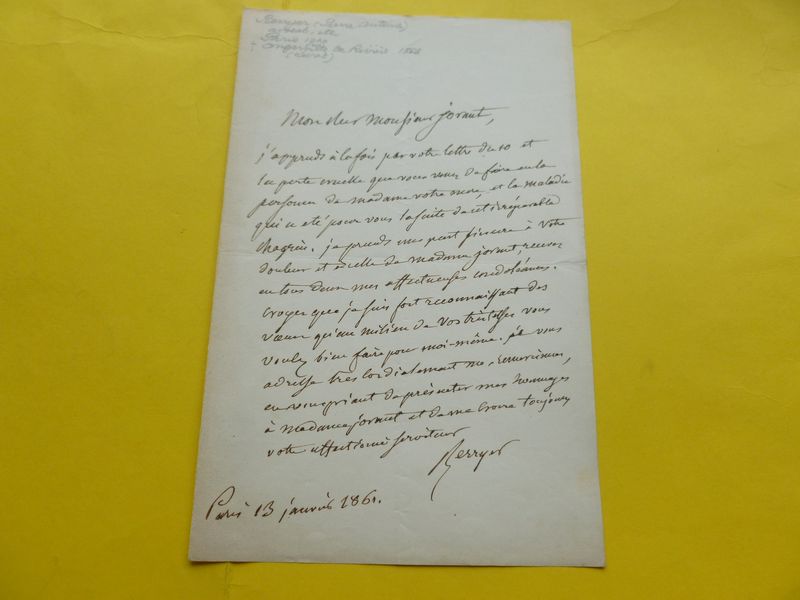 Berryer (Pierre Antoine)
avocat, etc
Paris 1790
† Augerville la Rivière 1868
(Loiret)
Mon cher Monsieur jorant,
j'apprends à la fois par votre lettre du 10 et
la perte cruelle que vous venez de faire en la
personne de Madame votre mère, et la maladie
qui a été pour vous la suite de cet irréparable
chagrin. je prends une part sincère à votre
douleur et à celle de Madame jorant, recevez
en tous deux mes affectueuses condoléances.
Croyez que je suis fort reconnaissant des
vœux qu'au milieu de vos tristesses vous
voulez bien faire pour moi-même. je vous
adresse très cordialement mes remerciemens,
en vous priant de présenter mes hommages
à Madame jorant et de me croire toujours
votre affectionné serviteur
Berryer
Paris 13 janvier 1861.